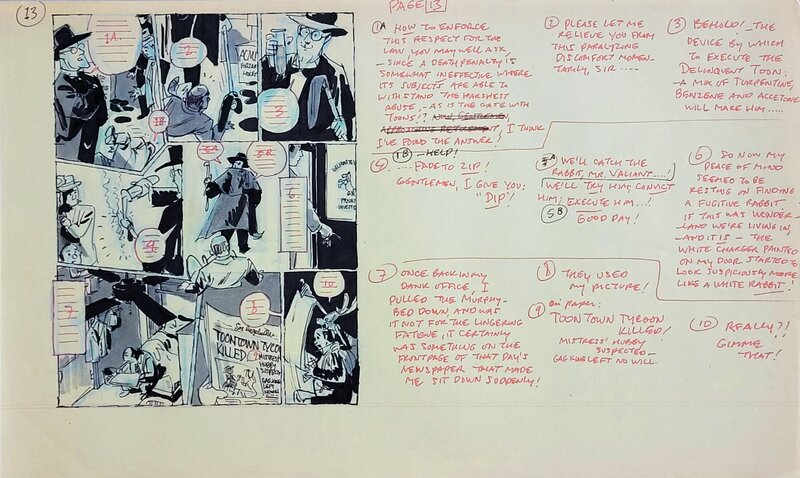 13
PAGE 13
1A HOW TO ENFORCE
THIS RESPECT FOR THE
LAW YOU MAY WELL ASK,
- SINCE A DEATH PENALTY IS
SOMEWHAT INEFFECTIVE WHERE
ITS SUBJECTS ARE ABLE TO
WITHSTAND THE HARSHEST
ABUSE, - AS IS THE CASE WITH
TOONS!? NOW, GENTLEMEN,
I THINK
I'VE FOUND THE ANSWER!
1B - HELP!
2 PLEASE LET ME
RELIEVE YOU FROM
THIS PARALYZING
DISCOMFORT MOMEN-
TARILY, SIR....
3 BEHOLD! - THE
DEVICE BY WHICH
TO EXECUTE THE
DELINQUENT TOON:
- A MIX OF TURPENTINE,
BENZENE AND ACCETONE
WILL MAKE HIM.....
4 .... FADE TO ZIP!
GENTLEMEN, I GIVE YOU:
"DIP"!
5A WE'LL CATCH THE
RABBIT, MR. VALIANT....!
WE'LL TRY HIM, CONVICT
HIM! EXECUTE HIM...!
5B GOOD DAY!
6 SO NOW MY
PEACE OF MIND
SEEMED TO BE
RESTING ON FINDING
A FUGITIVE RABBIT -
IF THIS WAS WONDER-
-LAND WE'RE LIVING IN,
- AND IT IS - THE
WHITE CHARGER PAINTED
ON MY DOOR STARTED TO
LOOK SUSPICIOUSLY MORE
LIKE A WHITE RABBIT!
7 ONCE BACK IN MY
DANK OFFICE, I
PULLED THE MURPHY-
BED DOWN, AND WAS
IT NOT FOR THE LINGERING
FATIGUE, IT CERTAINLY
WAS SOMETHING ON THE
FRONTPAGE OF THAT DAY'S
NEWSPAPER THAT MADE
ME SIT DOWN SUDDENLY!
8 THEY USED
MY PICTURE!
9 ON PAPER:
TOONTOWN TYCOON
KILLED!
MISTRESS' HUBBY
SUSPECTED -
GAG KING LEFT NO WILL.
10 REALLY?!
GIMME
THAT!
1A
2
ACME
3
1B
5A
5B
6
4
7
8
10
TOONTOWN TYCO
KILLED
9
MISTRESS
HUBBY